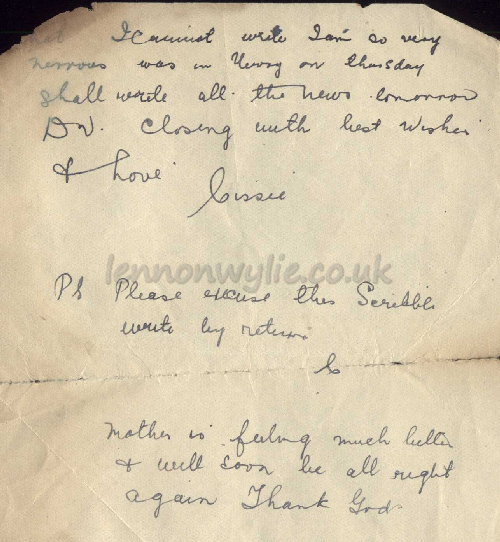 hat I cannot write I am so very
nervous was in Newry on thursday
shall write all the news tomorrow
D.V. Closing with best wishes
& love
Cissie
lennonwylie.co.uk
PS Please excuse this Scribble
write by return
C
Mother is feeling much better
& will soon be all right
again Thank God